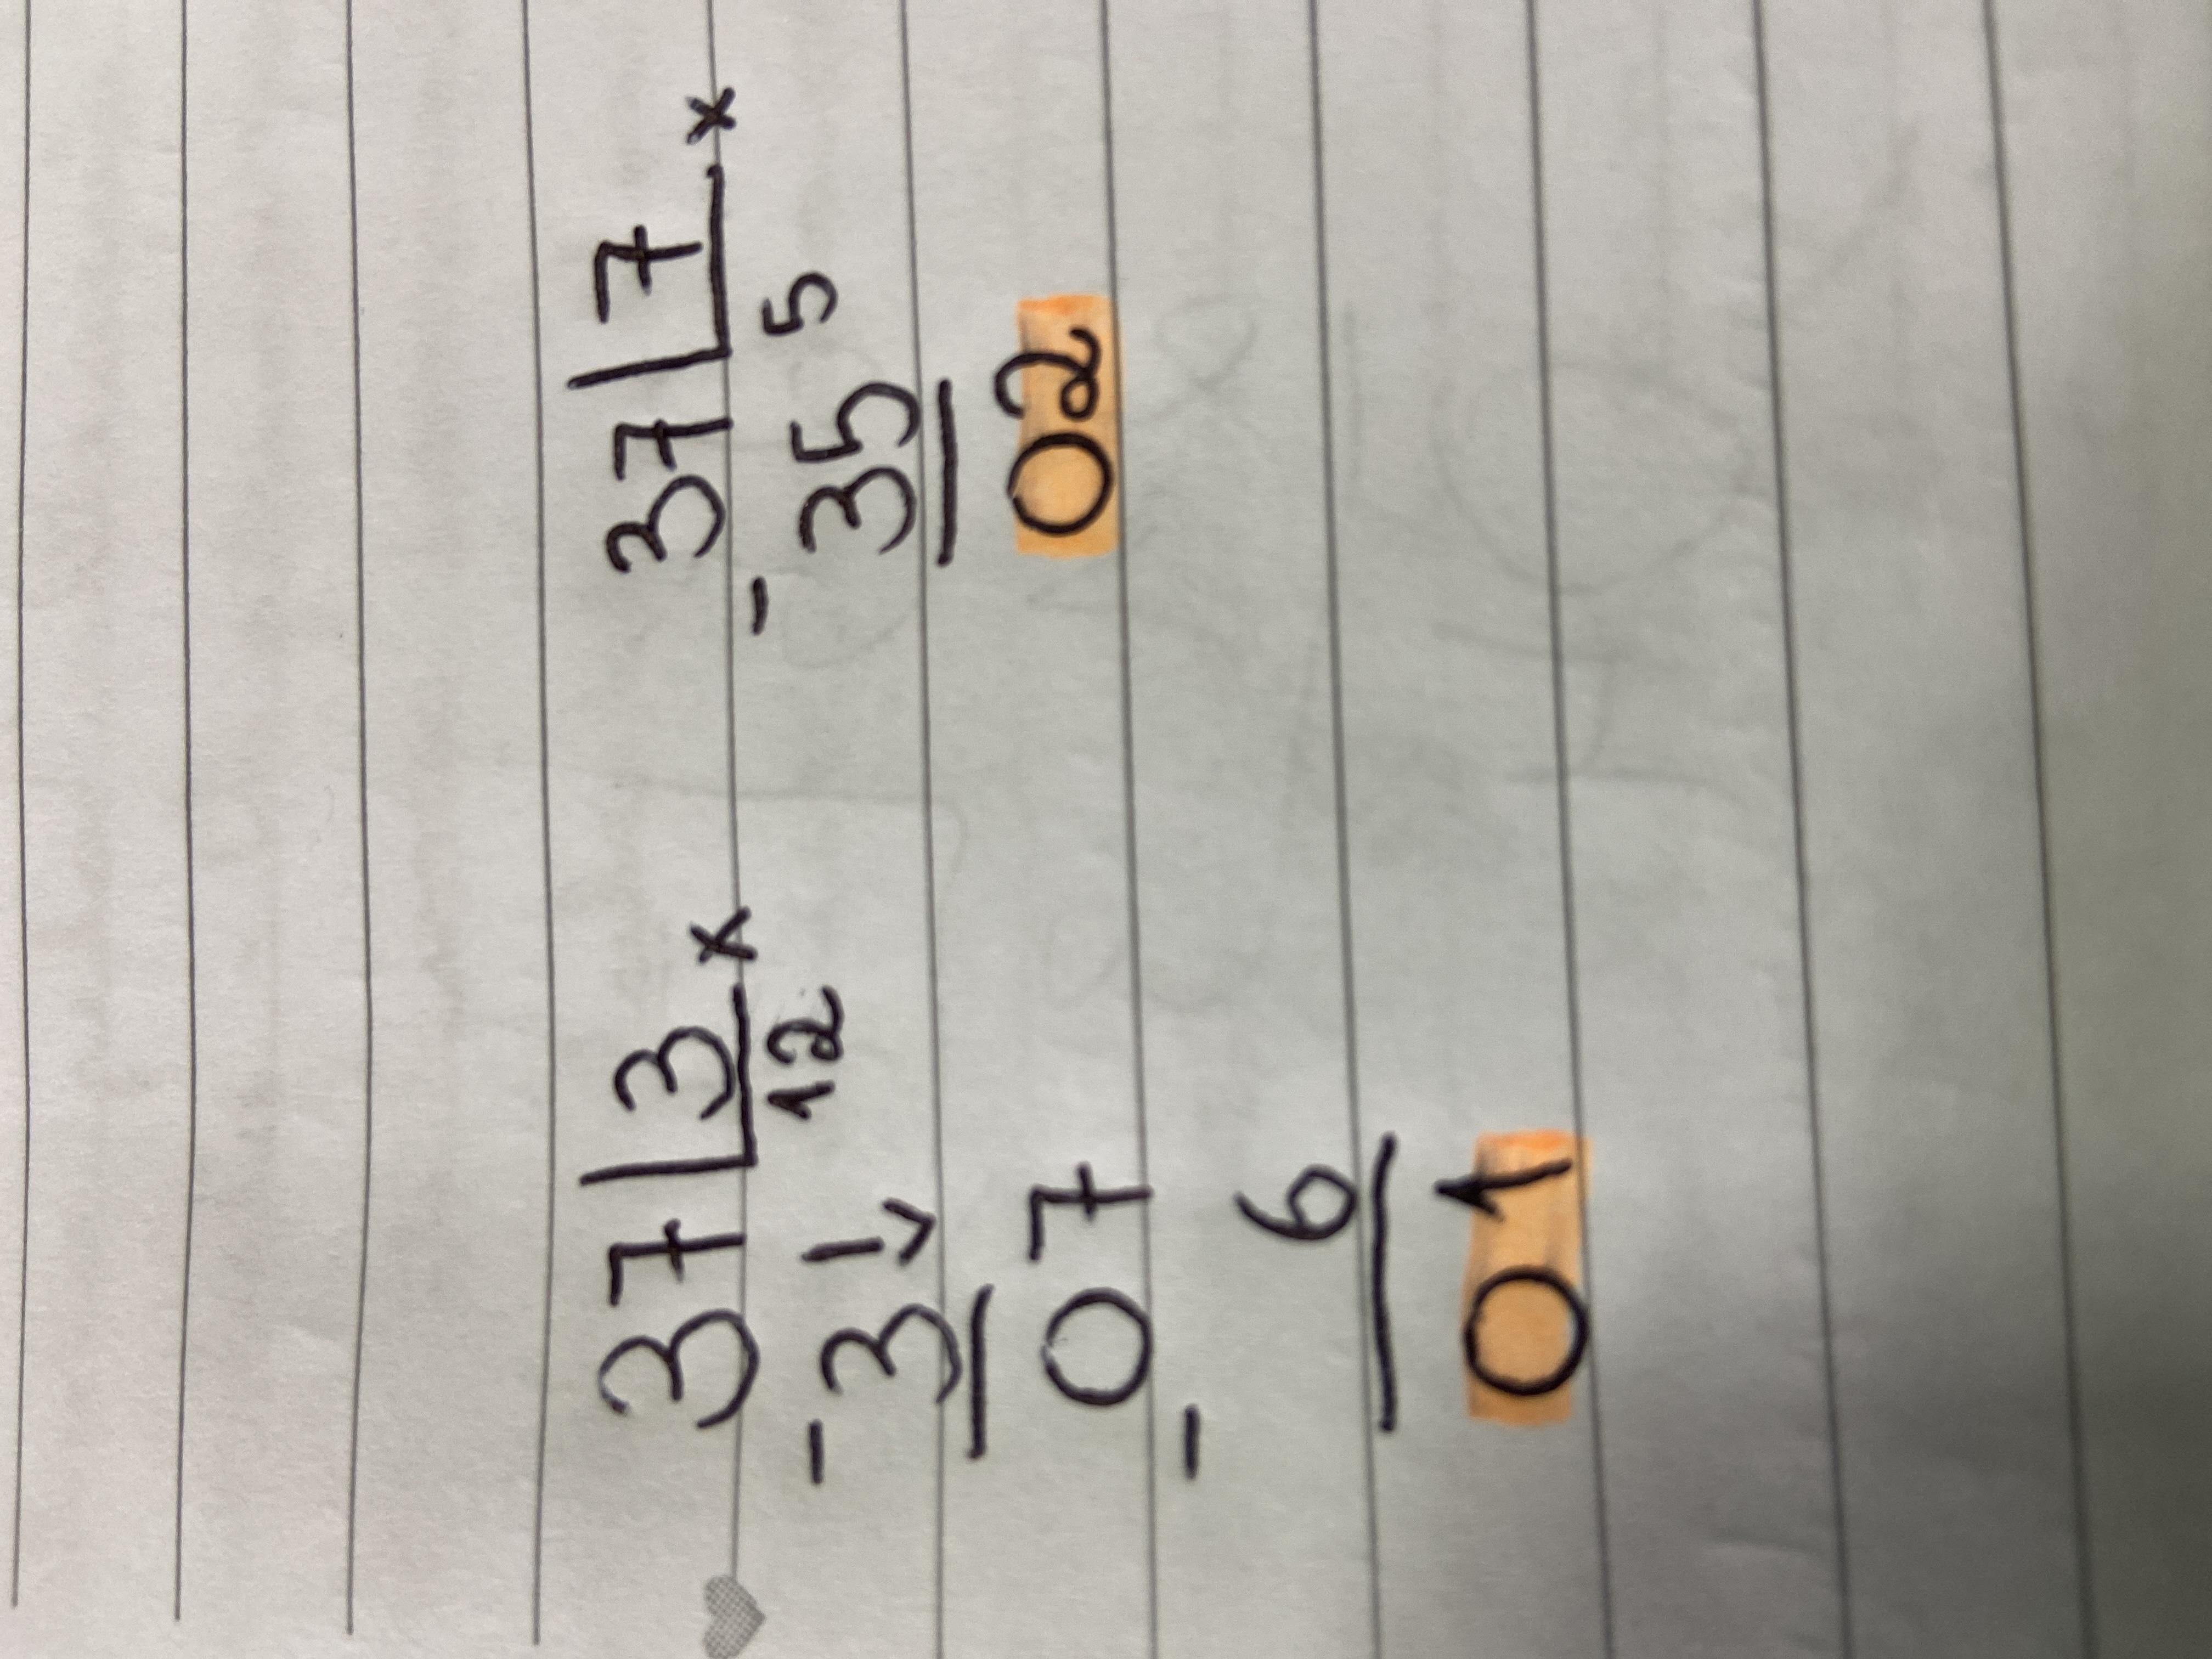 37 | 3 x
- 3 ↓ 12
07
- 6
01
37 | 7 x
- 35 5
02